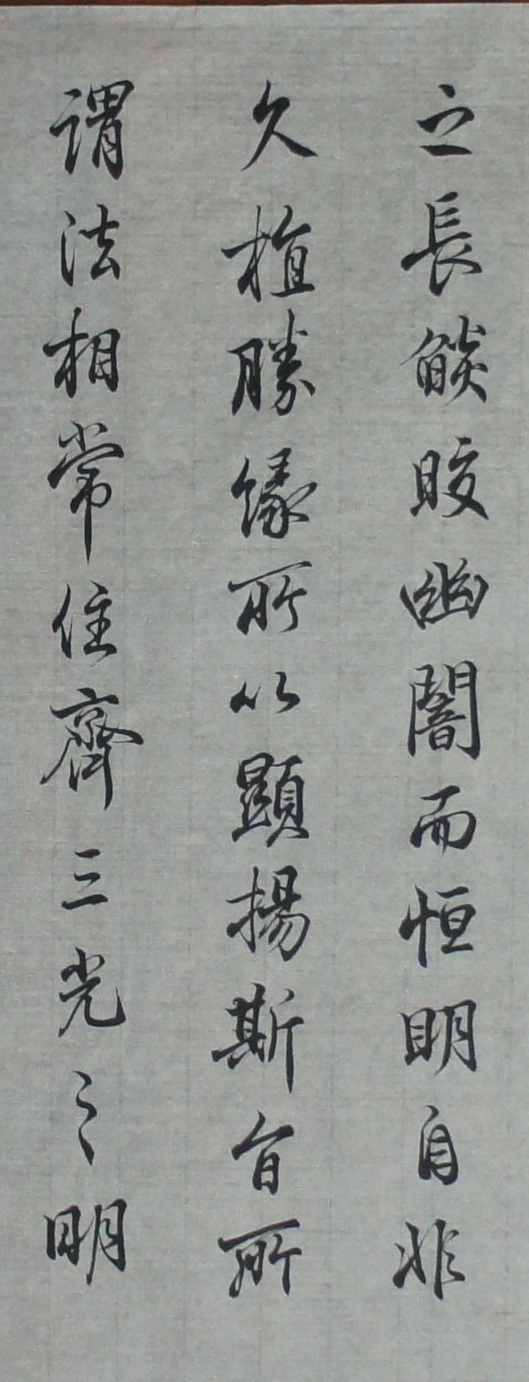 之長燄皎幽闇而恒明自非
久植勝緣所以顯揚斯旨所
謂法相常住齊三光之明